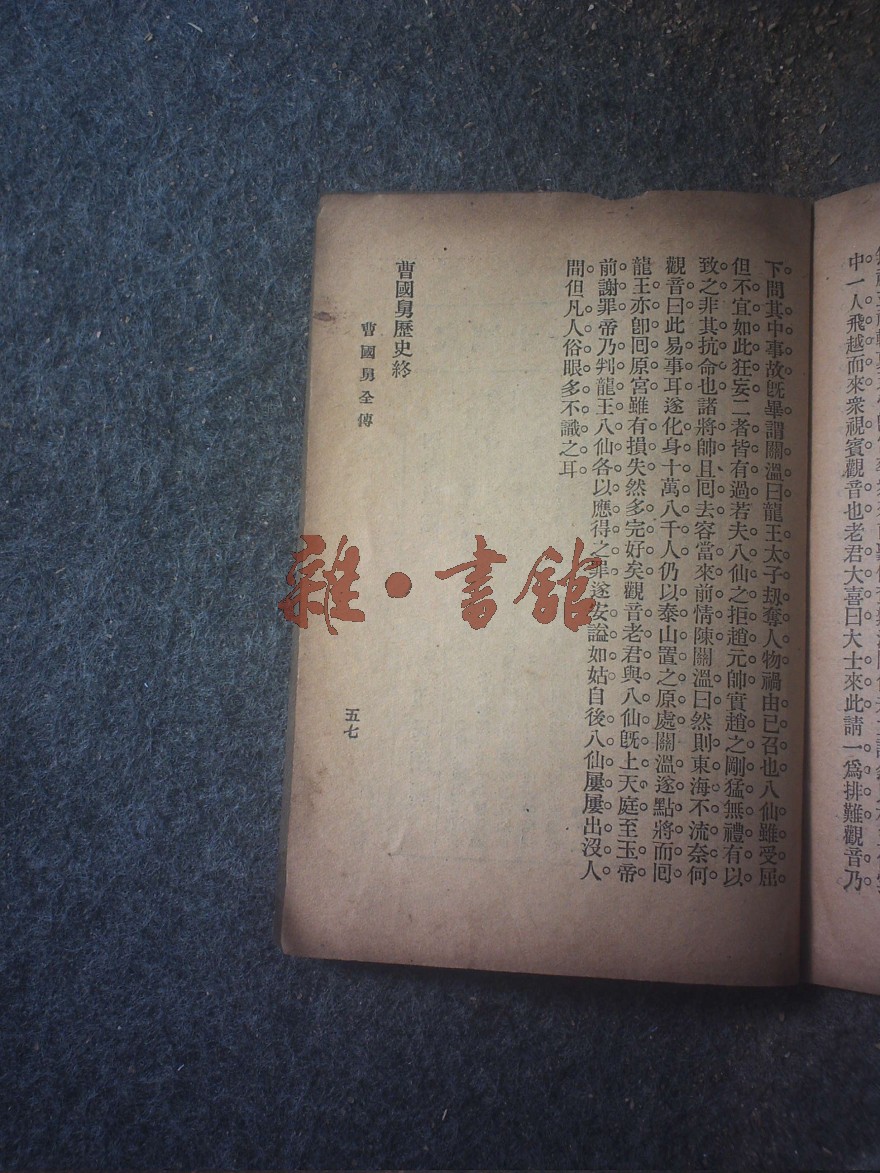 中一人飛越而來衆視賓觀音也老君大喜曰大士來此請一爲排難觀音乃
下問其中事故旣畢謂關溫曰龍王太子刼奪人物禍由已召也八仙雖受屈
但不宜如此狂妄二者皆有過若夫八仙之拒趙元帥實趙之剛猛無禮有以
致之非其抗命也諸將帥且囘去容當來前情陳關溫曰然則東海不流奈何
觀音曰此易事耳遂化身十萬八千人仍以泰山置之原處關溫遂點將而囘
龍王亦卽囘原宮雖有損失然多完好矣觀音老君與八仙旣上天庭至玉帝
前謝罪帝乃判龍王八仙各以應得之罪遂安謐如姑自後八仙屢屢出沒人
間但凡人俗眼多不識之耳
曹國舅歷史終
曹國舅全傳
五七
雜·書館